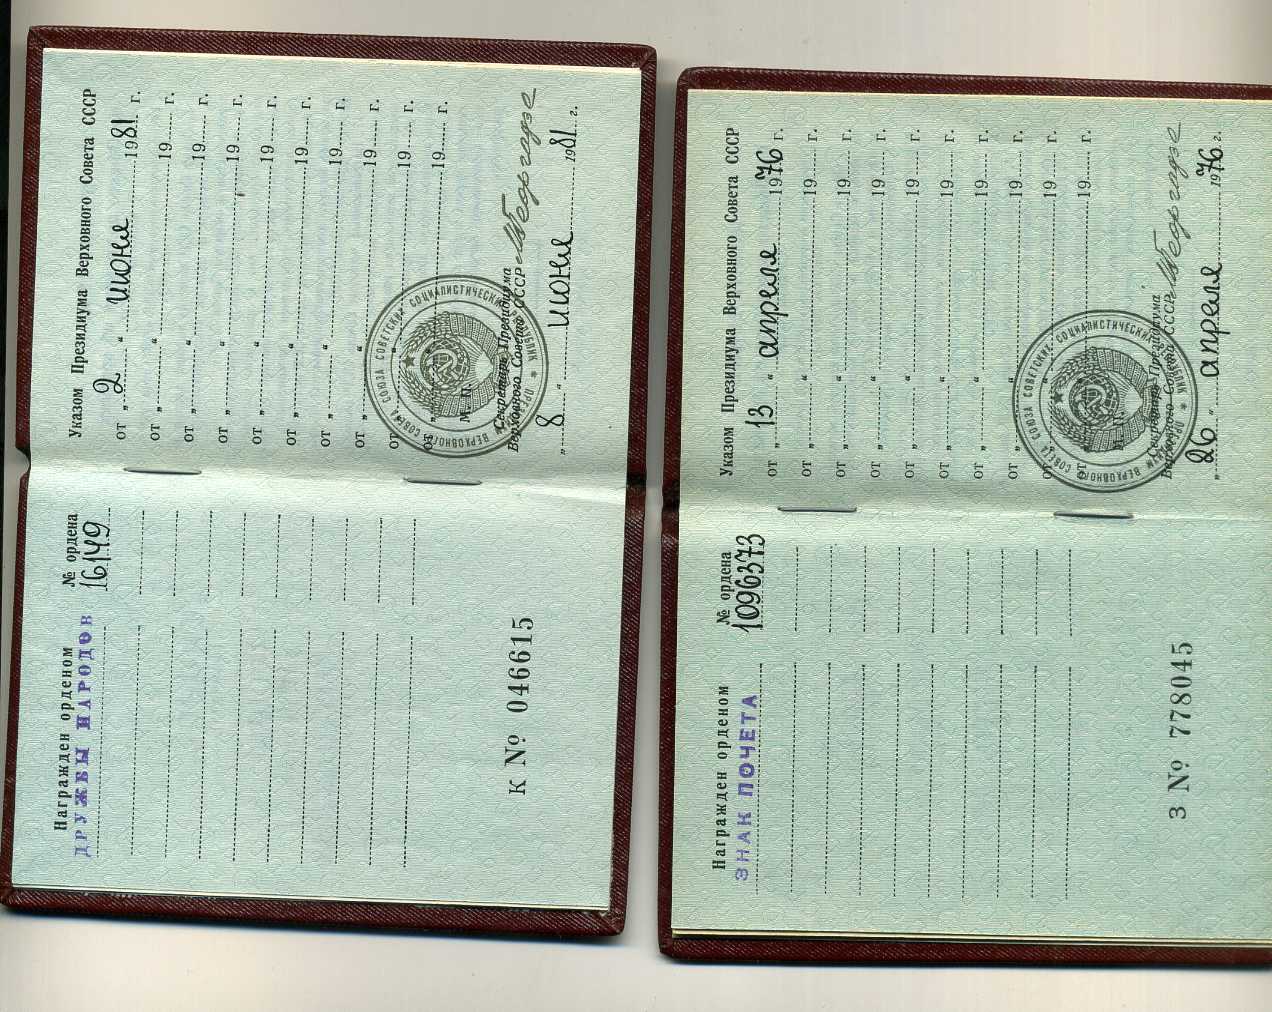 Награжден орденом
ДРУЖБЫ НАРОДОВ
№ ордена
16149
К № 046615
Указом Президиума Верховного Совета СССР
от „ 2 “ июня 1981 г.
от „ “ 19 г.
от „ “ 19 г.
от „ “ 19 г.
от „ “ 19 г.
от „ “ 19 г.
от „ “ 19 г.
от „ “ 19 г.
от „ “ 19 г.
от „ “ 19 г.
М. П.
Секретарь Президиума
Верховного Совета СССР МГеоргадзе
„ 8 “ июня 1981 г.
ПРЕЗИДИУМ ВЕРХОВНОГО СОВЕТА СОЮЗА СОВЕТСКИХ СОЦИАЛИСТИЧЕСКИХ РЕСПУБЛИК
Награжден орденом
ЗНАК ПОЧЕТА
№ ордена
1096373
З № 778045
Указом Президиума Верховного Совета СССР
от „ 13 “ апреля 1976 г.
от „ “ 19 г.
от „ “ 19 г.
от „ “ 19 г.
от „ “ 19 г.
от „ “ 19 г.
от „ “ 19 г.
от „ “ 19 г.
от „ “ 19 г.
от „ “ 19 г.
М. П.
Секретарь Президиума
Верховного Совета СССР МГеоргадзе
„ 26 “ апреля 1976 г.
ПРЕЗИДИУМ ВЕРХОВНОГО СОВЕТА СОЮЗА СОВЕТСКИХ СОЦИАЛИСТИЧЕСКИХ РЕСПУБЛИК